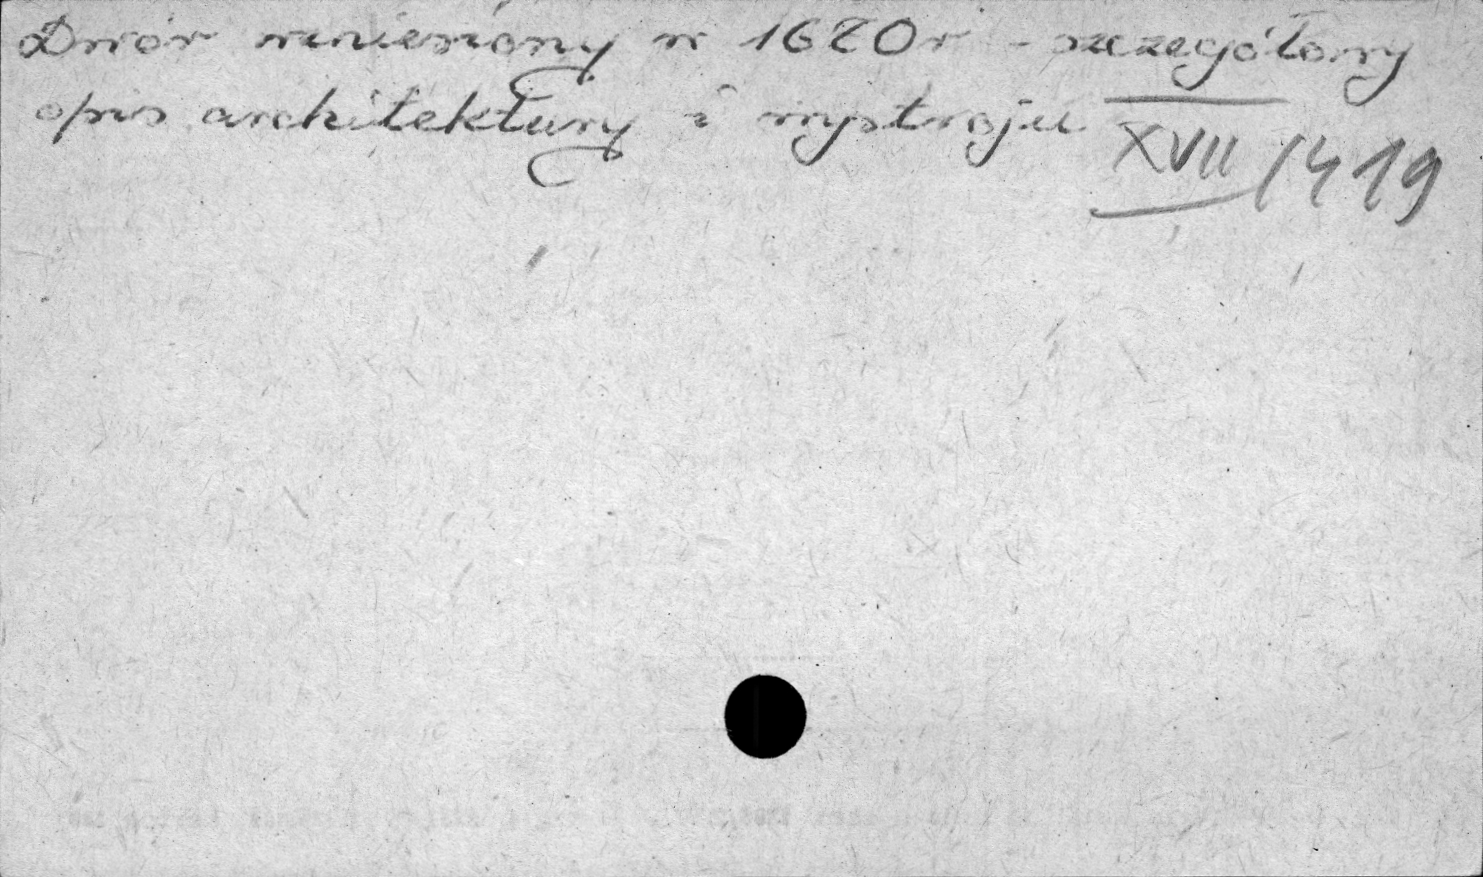 Dwór wzniesiony w 1620r - szczegółowy
opis architektury i wystroju
XVII/419